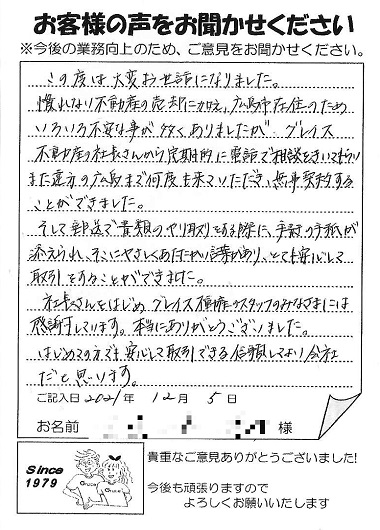 お客様の声をお聞かせください
※今後の業務向上のため、ご意見をお聞かせください。
この度は大変お世話になりました。
慣れない不動産の売却に加え、広島市在住のため
いろいろ不安な事が多くありましたが、グレイス
不動産の社長さんから定期的に電話で相談をきいてもらい
また遠方の広島まで何度も来ていただき、無事契約する
ことができました。
そして郵送で書類のやりとりをする際に、手書の手紙が
添えられ、そこにやさしくあたたかい言葉があり、とても安心して
取引をすることができました。
社長さんをはじめ、グレイス不動産のスタッフのみなさまには
感謝しています。本当にありがとうございました。
はじめての方でも安心して取引できる信頼してよい会社
だと思います。
ご記入日 2021年 12月 5日
お名前 様
Since
1979
貴重なご意見ありがとうございました!
今後も頑張りますので
よろしくお願いいたします